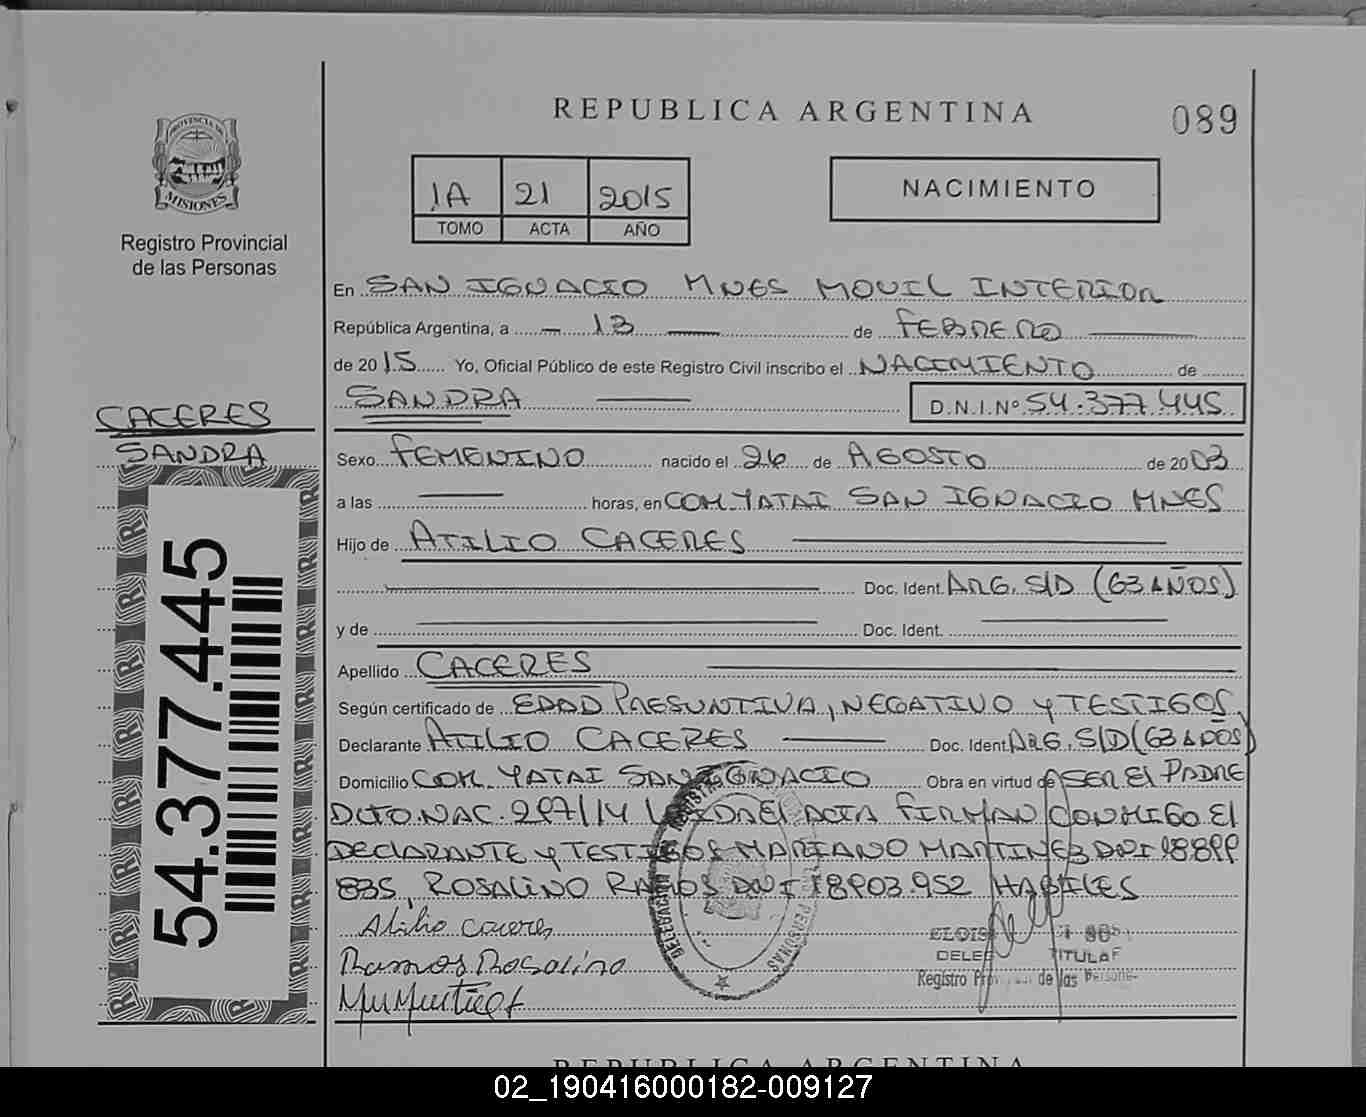 REPUBLICA ARGENTINA
089
PROVINCIA DE
MISIONES
Registro Provincial
de las Personas
1A 21 2015
TOMO ACTA AÑO
NACIMIENTO
En SAN IGNACIO MNES MOVIL INTERIOR
República Argentina, a 13 de FEBRERO
de 2015 Yo, Oficial Público de este Registro Civil inscribo el NACIMIENTO de
SANDRA D.N.I.Nº 54.377.445
CACERES
SANDRA
54.377.445
Sexo FEMENINO nacido el 26 de AGOSTO de 2003
a las horas, en COM. YATAI SAN IGNACIO MNES
Hijo de ATILIO CACERES
Doc. Ident. ARG. S/D (63 AÑOS)
y de Doc. Ident.
Apellido CACERES
Según certificado de EDAD PRESUNTIVA, NEGATIVO Y TESTIGOS
Declarante ATILIO CACERES Doc. Ident. ARG. S/D (63 AÑOS)
Domicilio COM. YATAI SAN IGNACIO Obra en virtud de SER EL PADRE
DCTO. NAC. 297/14 LEIDA EL ACTA FIRMAN CONMIGO EL
DECLARANTE Y TESTIGOS MARIANO MARTINEZ DNI 18899
835, ROSALINO RAMOS DNI 18903.952 HABILES
Atilio Caceres
Ramos Rosalino
DELEGACION
PERSONAS
TITULAR
Registro de las Persona
REPUBLICA ARGENTINA
02_190416000182-009127